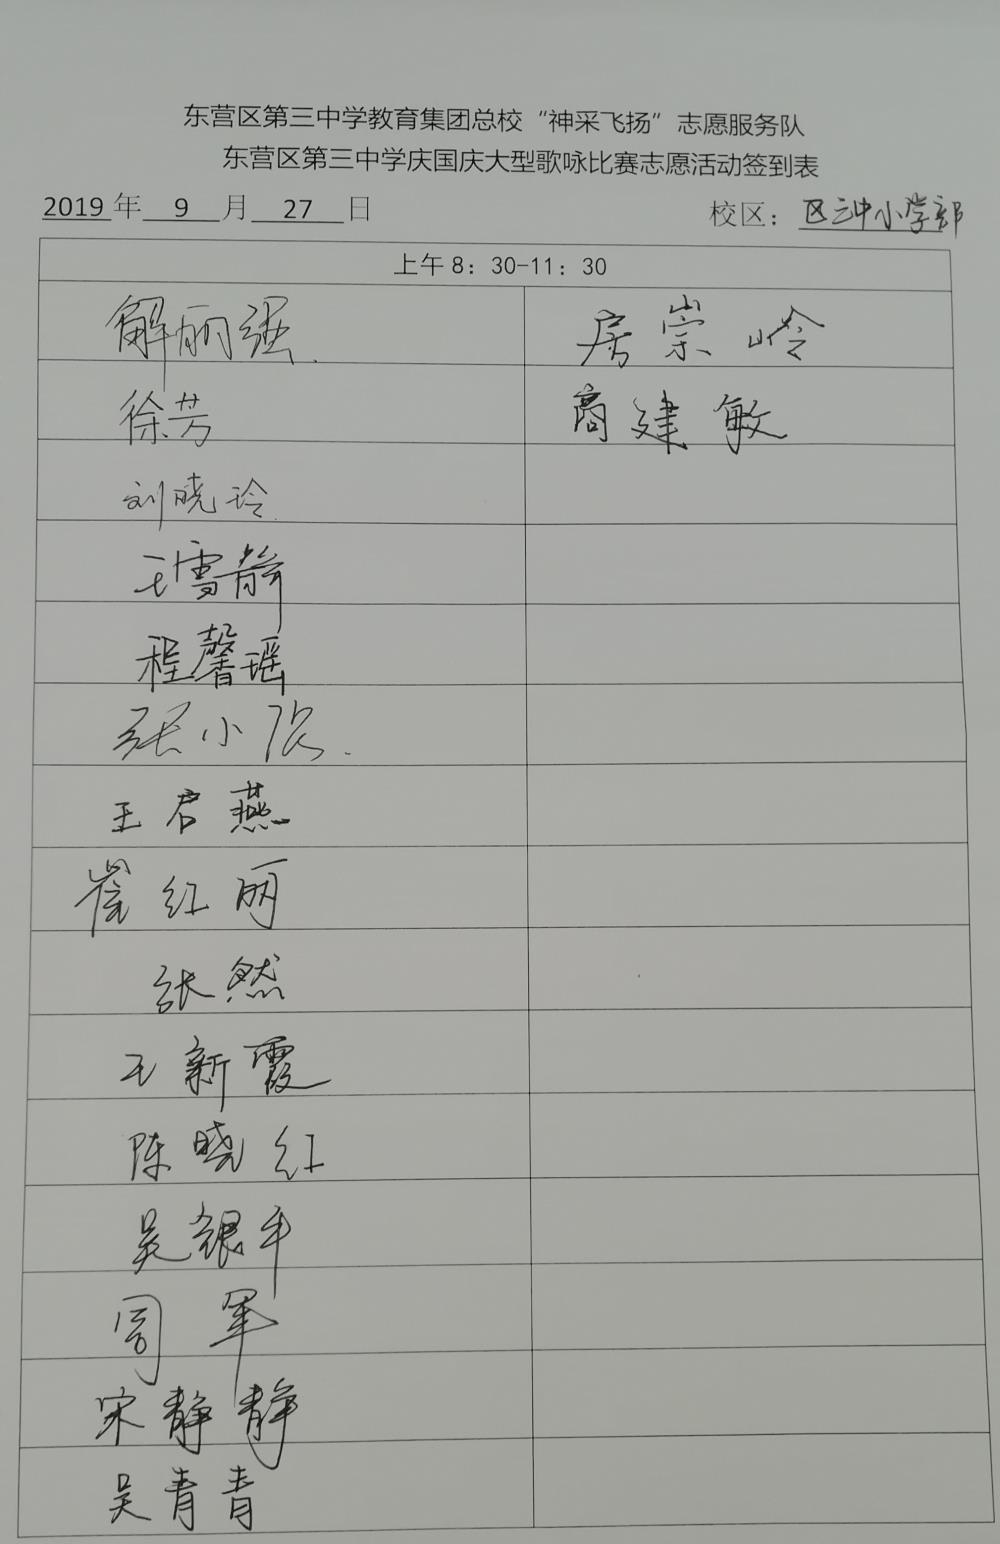 东营区第三中学教育集团总校“神采飞扬”志愿服务队
东营区第三中学庆国庆大型歌咏比赛志愿活动签到表
2019 年 9 月 27 日 校区：区三中小学部
上午 8：30-11：30
解丽强 房崇岭
徐芳 商建敏
刘晓玲
王雪静
程馨瑶
张小
王君燕
崔红丽
张然
王新霞
陈晓红
吴银平
周军
宋静静
吴青青